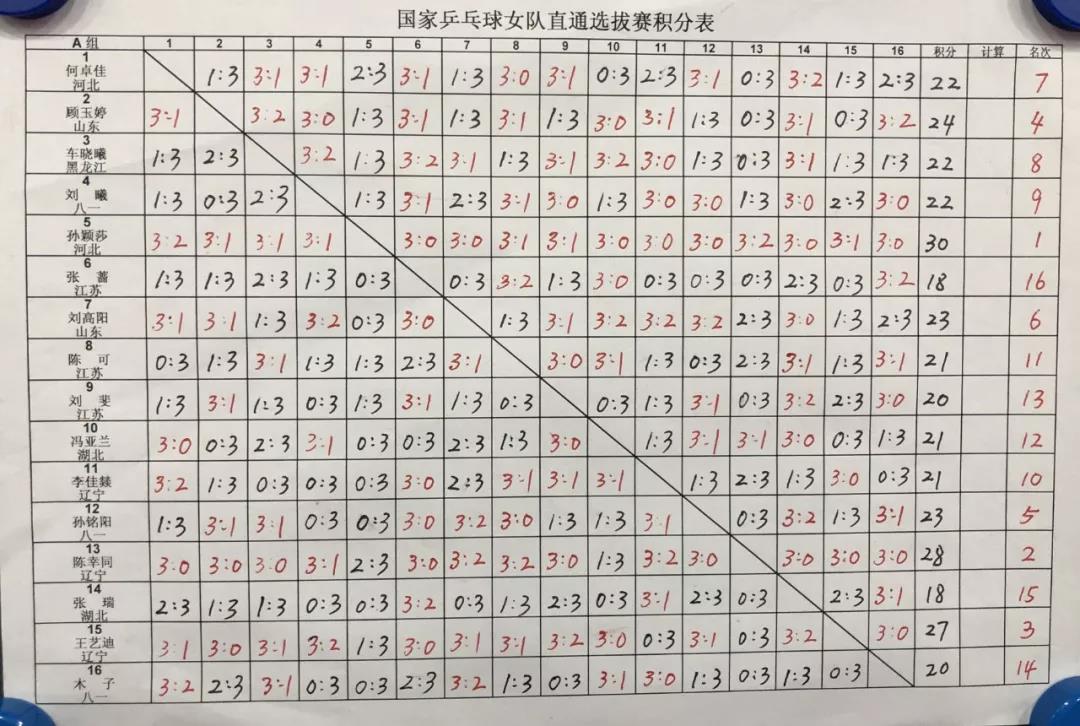 国家乒乓球女队直通选拔赛积分表
A组 1 2 3 4 5 6 7 8 9 10 11 12 13 14 15 16 积分 计算 名次
1
何卓佳 1:3 3:1 3:1 2:3 3:1 1:3 3:0 3:1 0:3 2:3 3:1 0:3 3:2 1:3 2:3 22 7
河北
2
顾玉婷 3:1 3:2 3:0 1:3 3:1 1:3 3:1 1:3 3:0 3:1 1:3 0:3 3:1 0:3 3:2 24 4
山东
3
车晓曦 1:3 2:3 3:2 1:3 3:2 3:1 1:3 3:1 3:2 3:0 1:3 0:3 3:1 1:3 1:3 22 8
黑龙江
4
刘曦 1:3 0:3 2:3 1:3 3:1 2:3 3:1 3:0 1:3 3:0 3:0 1:3 3:0 2:3 3:0 22 9
八一
5
孙颖莎 3:2 3:1 3:1 3:1 3:0 3:0 3:1 3:1 3:0 3:0 3:0 3:2 3:0 3:1 3:0 30 1
河北
6
张蔷 1:3 1:3 2:3 1:3 0:3 0:3 3:2 1:3 3:0 0:3 0:3 0:3 2:3 0:3 3:2 18 16
江苏
7
刘高阳 3:1 3:1 1:3 3:2 0:3 3:0 1:3 3:1 3:2 3:2 3:2 2:3 3:0 1:3 2:3 23 6
山东
8
陈可 0:3 1:3 3:1 1:3 1:3 2:3 3:1 3:0 3:1 1:3 0:3 2:3 3:1 1:3 3:1 21 11
江苏
9
刘斐 1:3 3:1 1:3 0:3 1:3 3:1 1:3 0:3 0:3 1:3 3:1 0:3 3:2 2:3 3:0 20 13
江苏
10
冯亚兰 3:0 0:3 2:3 3:1 0:3 0:3 2:3 1:3 3:0 1:3 3:1 3:1 3:0 0:3 1:3 21 12
湖北
11
李佳燚 3:2 1:3 0:3 0:3 0:3 3:0 2:3 3:1 3:1 3:1 1:3 2:3 1:3 3:0 0:3 21 10
辽宁
12
孙铭阳 1:3 3:1 3:1 0:3 0:3 3:0 3:2 3:0 1:3 1:3 3:1 0:3 3:2 1:3 3:1 23 5
八一
13
陈幸同 3:0 3:0 3:0 3:1 2:3 3:0 3:2 3:2 3:0 1:3 3:2 3:0 3:0 3:0 3:0 28 2
辽宁
14
张瑞 2:3 1:3 1:3 0:3 0:3 3:2 0:3 1:3 2:3 0:3 3:1 2:3 0:3 2:3 3:1 18 15
湖北
15
王艺迪 3:1 3:0 3:1 3:2 1:3 3:0 3:1 3:1 3:2 3:0 0:3 3:1 0:3 3:2 3:0 27 3
辽宁
16
木子 3:2 2:3 3:1 0:3 0:3 2:3 3:2 1:3 0:3 3:1 3:0 1:3 0:3 1:3 0:3 20 14
八一